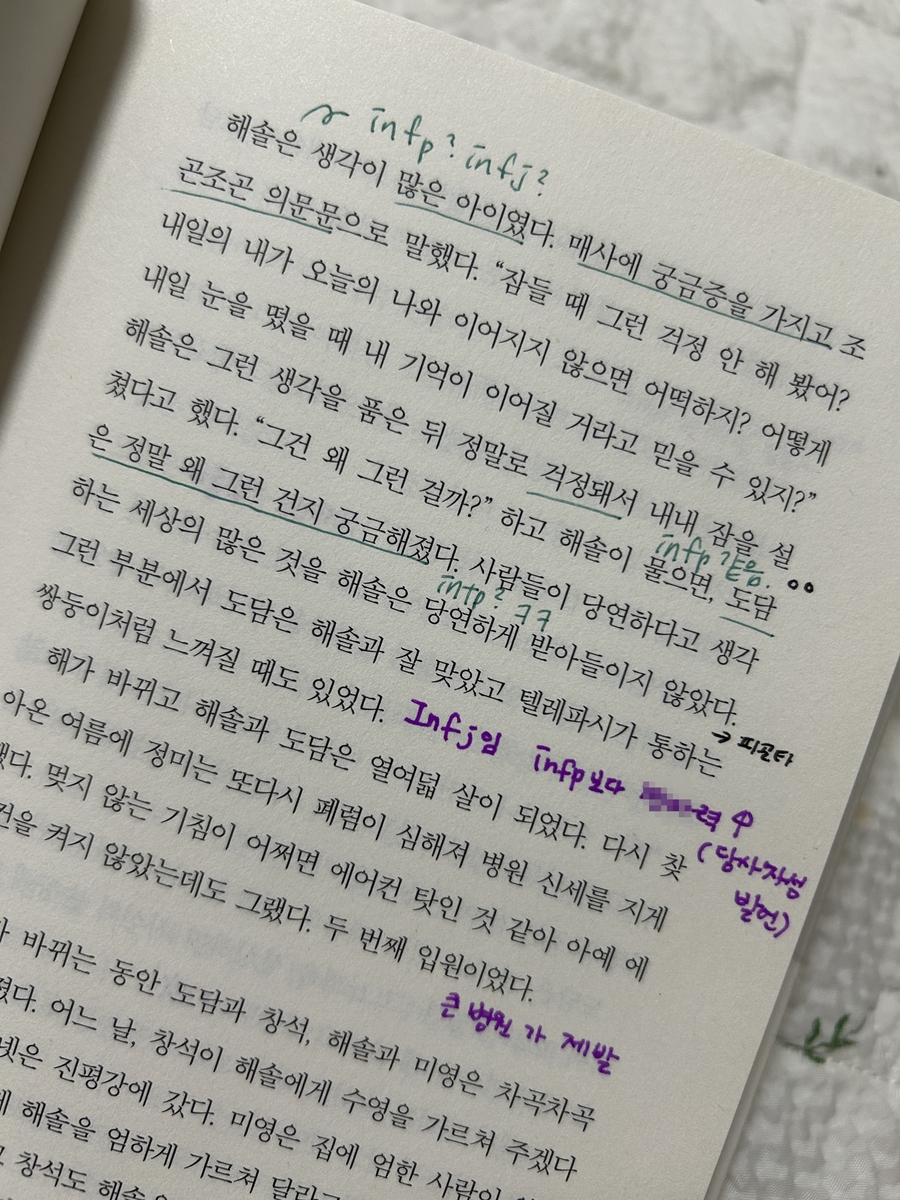 infp? infj?
해솔은 생각이 많은 아이였다. 매사에 궁금증을 가지고 조
곤조곤 의문문으로 말했다. “잠들 때 그런 걱정 안 해 봤어?
내일의 내가 오늘의 나와 이어지지 않으면 어떡하지? 어떻게
내일 눈을 떴을 때 내 기억이 이어질 거라고 믿을 수 있지?”
해솔은 그런 생각을 품은 뒤 정말로 걱정돼서 내내 잠을 설
쳤다고 했다. “그건 왜 그런 걸까?” 하고 해솔이 물으면, 도담
infp 같음.
은 정말 왜 그런 건지 궁금해졌다. 사람들이 당연하다고 생각
intp? ㅋㅋ
하는 세상의 많은 것을 해솔은 당연하게 받아들이지 않았다.
그런 부분에서 도담은 해솔과 잘 맞았고 텔레파시가 통하는
→ 피곤타
쌍둥이처럼 느껴질 때도 있었다.
Infj임 infp보다 력 ↑
(당사자성
발언)
해가 바뀌고 해솔과 도담은 열여덟 살이 되었다. 다시 찾
아온 여름에 정미는 또다시 폐렴이 심해져 병원 신세를 지게
했다. 멎지 않는 기침이 어쩌면 에어컨 탓인 것 같아 아예 에
컨을 켜지 않았는데도 그랬다. 두 번째 입원이었다.
큰 병원 가 제발
바뀌는 동안 도담과 창석, 해솔과 미영은 차곡차곡
졌다. 어느 날, 창석이 해솔에게 수영을 가르쳐 주겠다
넷은 진평강에 갔다. 미영은 집에 엄한 사람이
해솔을 엄하게 가르쳐 달라고
창석도 해솔